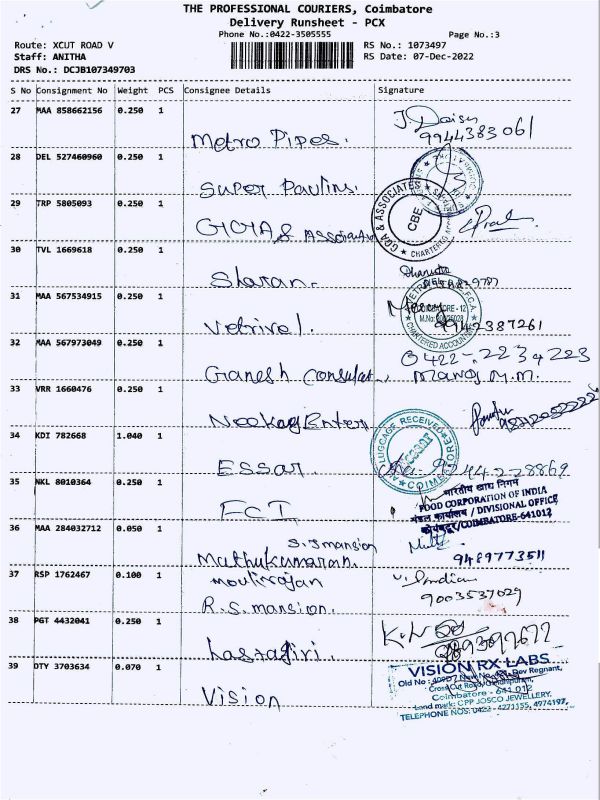 THE PROFESSIONAL COURIERS, Coimbatore
Delivery Runsheet - PCX
Phone No.:0422-3505555 Page No.:3
Route: XCUT ROAD V RS No.: 1073497
Staff: ANITHA RS Date: 07-Dec-2022
DRS No.: DCJB107349703
S No Consignment No Weight PCS Consignee Details Signature
27 MAA 858662156 0.250 1 Metro Pipes. J. Daisy 9944383061
28 DEL 527460960 0.250 1 Super Paulins.
29 TRP 5805093 0.250 1 GOYA & Associates GOA & ASSOCIATES CBE CHARTERED
30 TVL 1669618 0.250 1 Sharan.
31 MAA 567534915 0.250 1 Vetrivel. F.C.A. CHARTERED ACCOUNTANT 9942387261
32 MAA 567973049 0.250 1 Ganesh Consulat. 0422-2234223 Manoj M.M.
33 VRR 1660476 0.250 1
34 KDI 782668 1.040 1 ESSAR. LUGGAGE RECEIVED 9244228869
35 NKL 8010364 0.250 1 FCI भारतीय खाद्य निगम
FOOD CORPORATION OF INDIA
मंडल कार्यालय / DIVISIONAL OFFICE
कोयंबटूर/COIMBATORE-641012
36 MAA 284032712 0.050 1 S.S mansion
Muthukumaran. 9489773511
37 RSP 1762467 0.100 1 moulirajan
R.S. mansion. 9003537029
38 PGT 4432041 0.250 1
39 DTY 3703634 0.070 1 Vision VISION RX LABS
Cross Cut Road, Gandhipuram,
Coimbatore - 641 012
Land mark: CPP JOSCO JEWELLERY.
TELEPHONE NOS: 0422 - 4271155, 4974197,